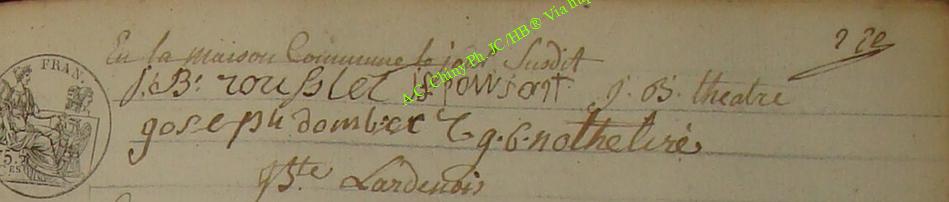 220
En la maison Commune le jour Susdit
j. B. rousslet j. poussart j. B. theatre
goseph dombier g. b. nothelire
JBte Lardenois
FRAN.
A.C. Chiny Ph. JC/HB® Via